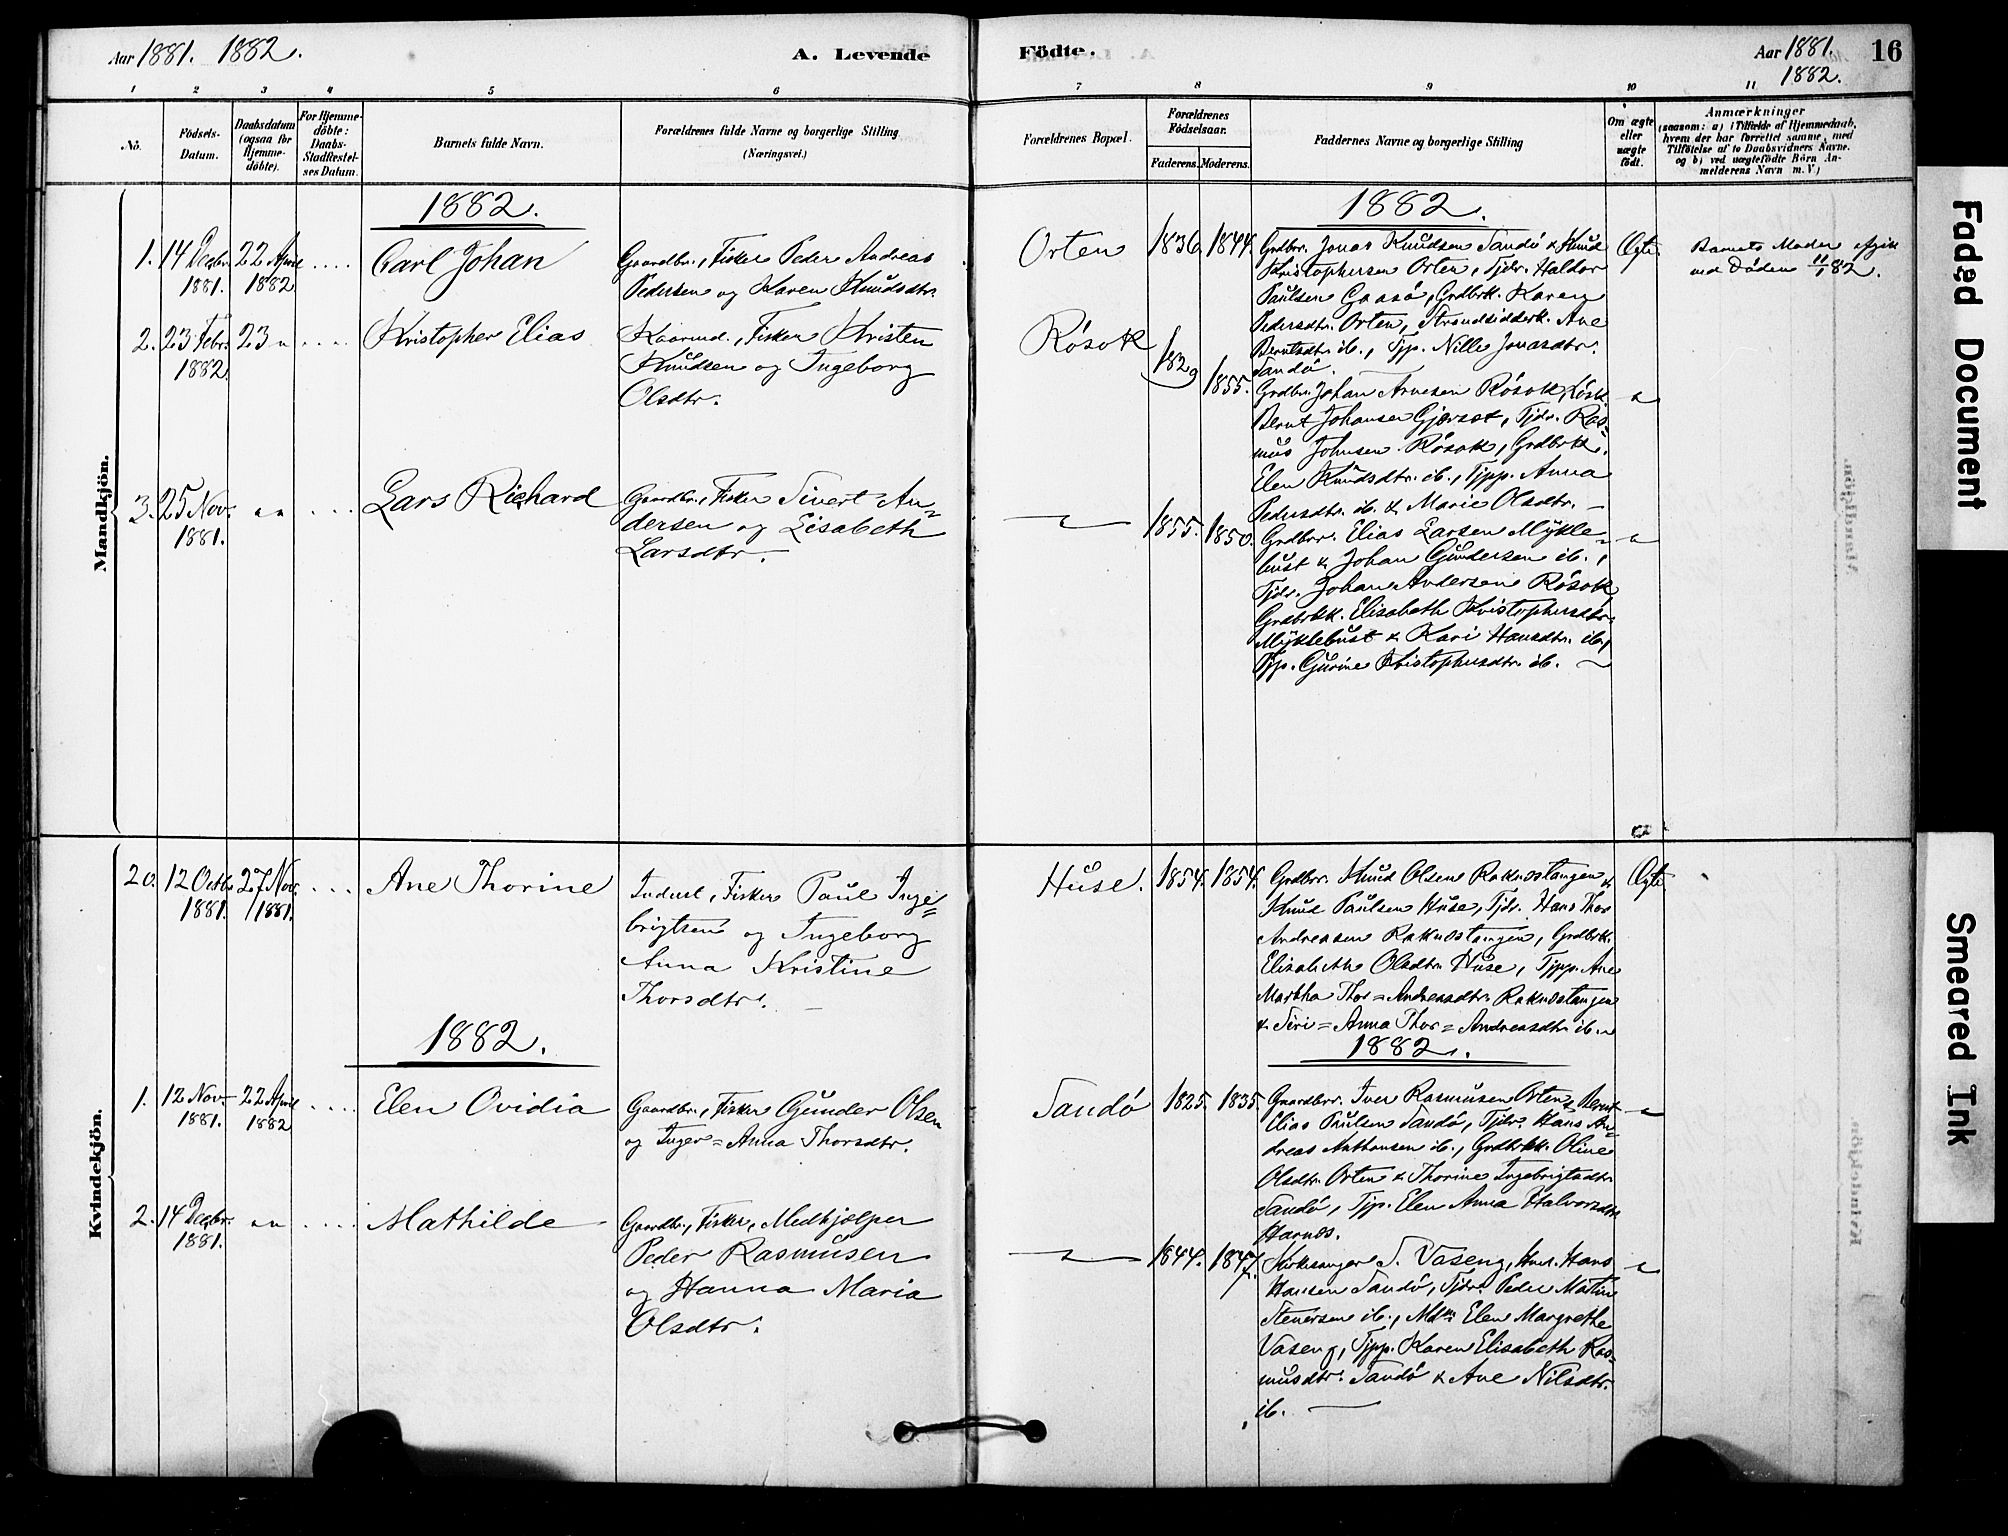 Aar 1881. 1882.
A. Levende
Födte.
Aar 1881.
1882.
16
1 2 3 4 5 6 7 8 9 10 11
No.
Födsels-
Datum.
Daabsdatum
(ogsaa for
Hjemme-
döbte).
For Hjemme-
döbte:
Daabs-
Stadfæstel-
ses Datum.
Barnets fulde Navn.
Forældrenes fulde Navne og borgerlige Stilling
(Næringsvei.)
Forældrenes Bopæl.
Forældrenes
Födselsaar.
Faderens. Moderens.
Faddernes Navne og borgerlige Stilling
Om ægte
eller
uægte
födt.
Anmærkninger
(saasom: a) i Tilfælde af Hjemmedaab,
hvem der har forrettet samme, med
Tilföielse af to Daabsvidners Navne.
og b) ved uægtefödte Börn An-
melderens Navn m. V.)
Mandkjön.
1882.
1. 14 Decbr. 1881. 22 April 1882 ....
Carl Johan
Gaardbr., Fisker Peder Andreas
Pedersen og Karen Knudsdtr.
Orten
1836. 1844.
1882.
Grdbr. Jonas Knudsen Sandö & Knud
Kristophersen Orten, Tjdr. Haldor
Paulsen Gaasö, Grdbrk. Karen
Pedersdtr. Orten, Strandsidderk. Ane
Berntsdtr. ib., Tjp. Nille Jonasdtr.
Sandö.
Ægte.
Barnets Moder afgik
ved Döden 11/1 82.
2. 23 Febr. 1882. 23 " ....
Kristopher Elias
Kaarmd., Fisker Kristen
Knudsen og Ingeborg
Olsdtr.
Rösok
1829 1855.
Grdbr. Johan Arnesen Rösok,
Bernt Johansen Gjörset, Tjdr. Ras=
mus Johnsen Rösok, Grdbrk.
Elen Knudsdtr. ib., Tjpp. Anna
Pedersdtr. ib. & Marie Olsdtr. —
"
3. 25 Nov. 1881. " " ....
Lars Richard
Gaardbr., Fisker Sivert An=
dersen og Lisabeth
Larsdtr. —
— " —
1855. 1850.
Grdbr. Elias Larsen Mykle=
bust & Johan Gundersen ib.,
Tjdr. Johan Andersen Rösok,
Grdbrkk. Elisabeth Kristophersdtr.
Myklebust & Kari Hansdtr. ib.,
Tjp. Gurine Kristophersdtr. ib. —
"
Kvindekjön.
20. 12 Octb. 1881. 27 Nov. 1881. ...
Ane Thorine
Inderst, Fisker Paul Inge=
brigtsen og Ingeborg
Anna Kristine
Thorsdtr. —
Huse.
1854. 1854.
Grdbr. Knud Olsen Raknestangen &
Knud Paulsen Huse, Tjdr. Hans Thor
Andreasen Raknestangen, Grdbrk.
Elisabeth Olsdtr. Huse, Tjpp. Ane
Martha Thor=Andreasdtr. Raknestangen
& Siri=Anna Thor=Andreasdtr. ib. —
Ægte
1882.
1882.
1. 12 Nov. 1881. 22 April 1882 ....
Elen Ovidia
Gaardbr., Fisker Gunder Olsen
og Inger=Anna Thorsdtr.
Sandö
1825. 1835.
Gaardbrr. Iver Rasmusen Orten & Bernt
Elias Paulsen Sandö, Tjdr. Hans An=
dreas Anthonsen ib., Grdbrkk. Oline
Olsdtr. Orten & Thorine Ingebrigtsdtr.
Sandö, Tjp. Elen Anna Halvorsdtr.
Harnes.
"
2. 14 Decbr. 1881. " " ....
Mathilde
Gaardbr., Fisker, Medhjælper
Peder Rasmusen
og Hanna Maria
Olsdtr.
— " —
1844. 1847.
Kirkesanger S. Vaseng, Hans
Hansen Sandö, Tjdr. Peder Martin
Stenersen ib., Mdm. Elen Margrethe
Vaseng, Tjpp. Karen Elisabeth Ras=
musdtr. Sandö & Ane Nilsdtr.
ib. —
"
Faded Document
Smeared Ink